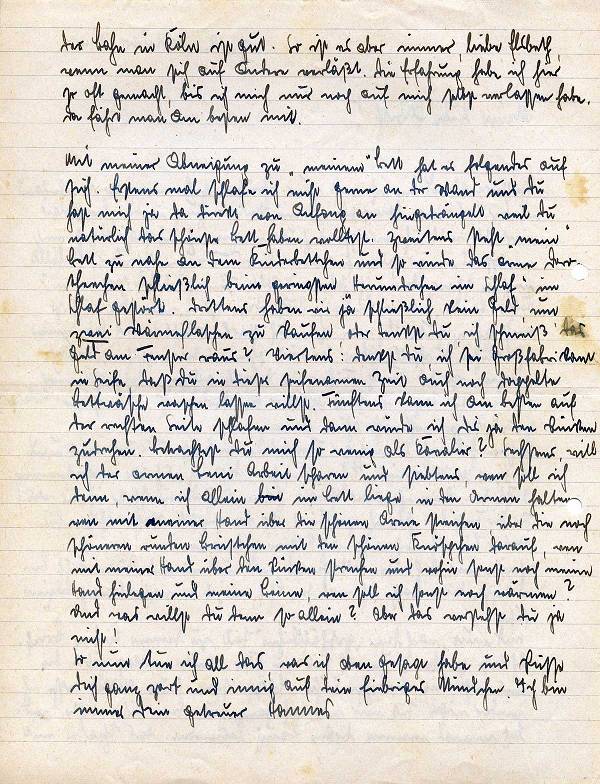 der Bahn in Köln ist gut. So ist es aber immer, liebe Elsbeth,
wenn man sich auf Andere verläßt. Die Erfahrung habe ich hier
so oft gemacht, bis ich mich nur noch auf mich selbst verlassen habe.
Da fährt man am besten mit.
Mit meiner Abneigung zu "meinem" Bett hat es folgendes auf
sich. Erstens mal schlafe ich nicht gerne an der Wand und du
hast mich ja da direkt von Anfang an hingedrängelt weil du
natürlich das schönste Bett haben wolltest. Zweitens steht "mein"
Bett zu nahe an dem Kinderbettchen und so würde das arme Dor-
theechen schließlich beim geringsten Herumdrehen im Schlaf im
Schlaf gestört. Drittens haben wir ja schließlich kein Geld, um
zwei Wärmeflaschen zu kaufen, oder denkst du, ich schmeiß das
Geld am Fenster raus? Viertens: denkst du ich sei Großfabrikant
in Seife, daß du in dieser seifenarmen Zeit auch noch doppelte
Bettwäsche waschen lassen willst. Fünftens kann ich am besten auf
der rechten Seite schlafen und dann würde ich dir ja den Rücken
zudrehen. Betrachtest du mich so wenig als Kavalier? Sechstens, will
ich der armen Leni Arbeit sparen und siebtens, wen soll ich
denn, wenn ich allein im Bett liege, in den Armen halten
wem mit meiner Hand über die schönen Arme streichen über die noch
schöneren runden Brüstchen mit den schönen Knöspchen darauf, wem
mit meiner Hand über den Rücken streichen und wohin sonst noch meine
Hand hinlegen und meine Beine, wen soll ich sonst noch wärmen?
Und was willst du denn so allein? Aber das verstehst du ja
nicht!
So nun tue ich all das, was ich oben gesagt habe und küsse
dich ganz zart und innig auf dein fiebriges Mündchen. Ich bin
immer dein getreuer Hannes